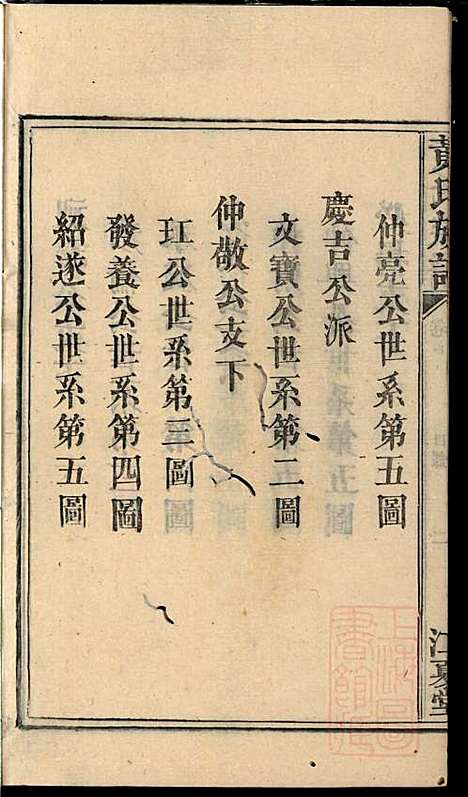 黃氏族譜
江夏堂
仲亮公世系第五圖
慶吉公派
文寶公世系第二圖
仲敬公支下
玒公世系第三圖
發養公世系第四圖
紹遂公世系第五圖